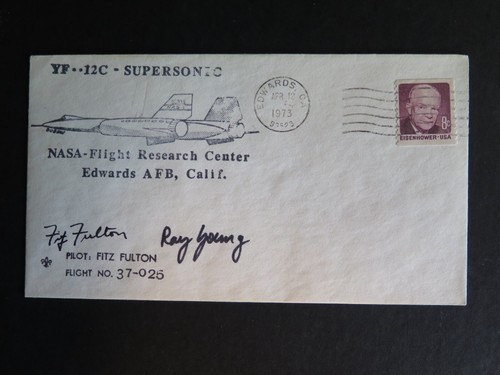 YF--12C - SUPERSONIC
NASA-Flight Research Center
Edwards AFB, Calif.
EDWARDS, CA
APR 12
1973
93523
8¢
EISENHOWER·USA
Fitz Fulton
Ray Young
PILOT: FITZ FULTON
FLIGHT NO. 37-025